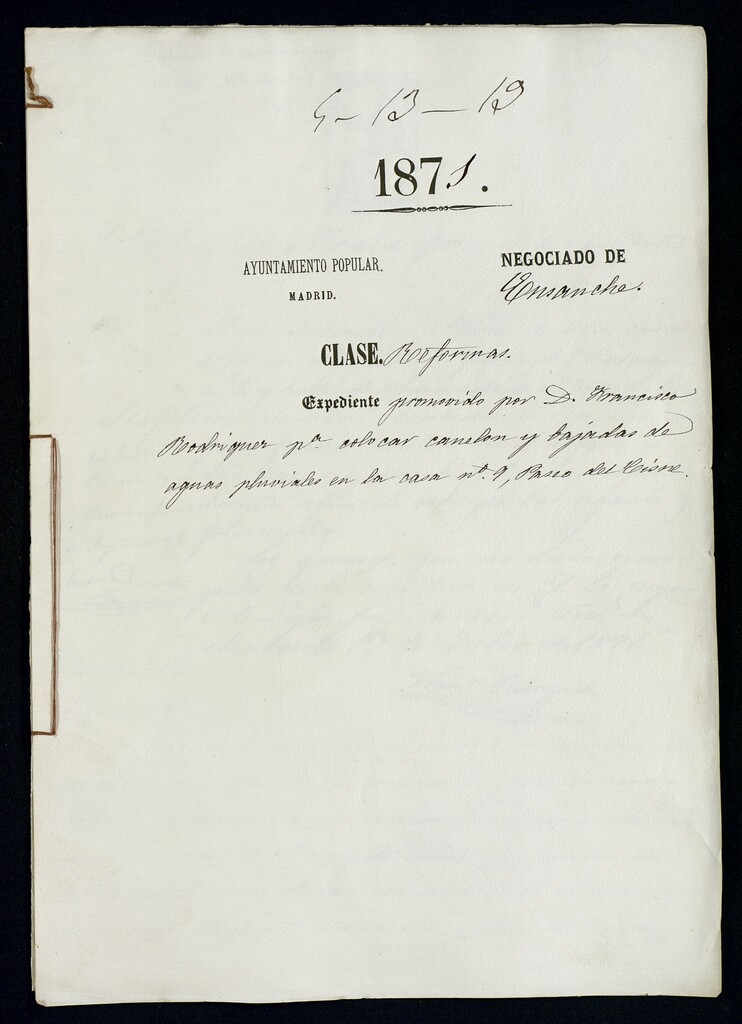 5-13-19
1871.
AYUNTAMIENTO POPULAR.
MADRID.
NEGOCIADO DE
Ensanche.
CLASE. Reformas.
Expediente promovido por D. Francisco
Rodriguez pª colocar canelon y bajadas de
aguas pluviales en la casa nº 9, Paseo del Cisne.